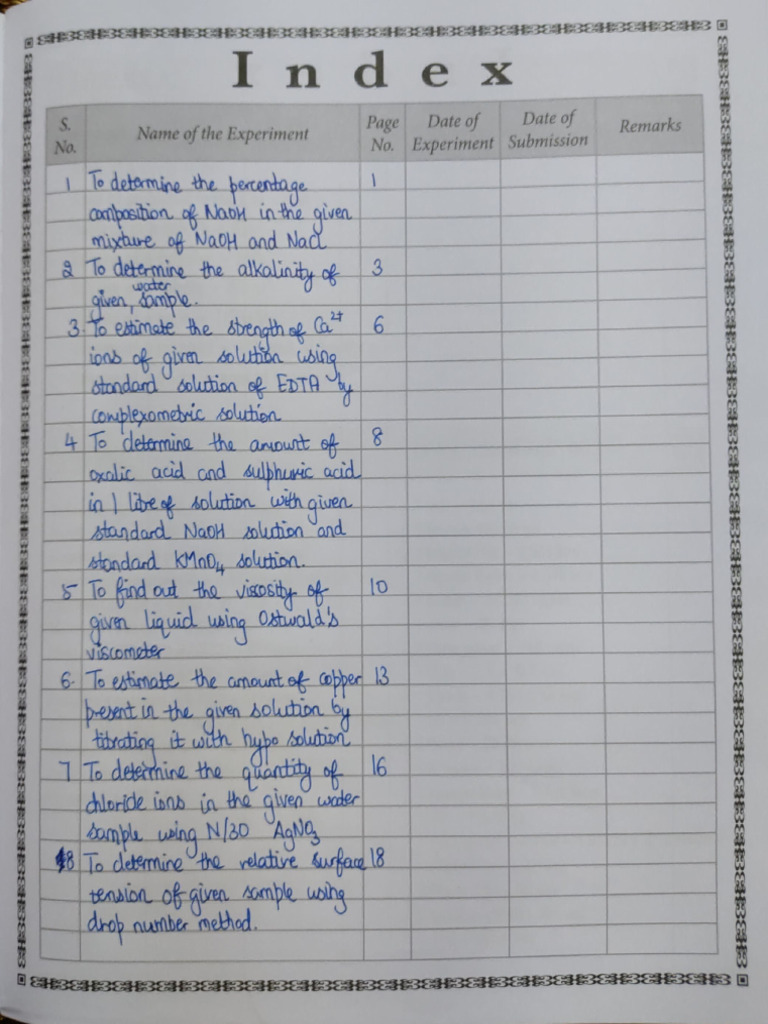 Index
S. No. Name of the Experiment Page No. Date of Experiment Date of Submission Remarks
1 To determine the percentage 1
composition of NaOH in the given
mixture of NaOH and NaCl
2 To determine the alkalinity of 3
given, water sample.
3. To estimate the strength of Ca²⁺ 6
ions of given solution using
standard solution of EDTA by
complexometric solution
4 To determine the amount of 8
oxalic acid and sulphuric acid
in 1 litre of solution with given
standard NaOH solution and
standard KMnO₄ solution.
5 To find out the viscosity of 10
given liquid using Ostwald's
viscometer
6. To estimate the amount of copper 13
present in the given solution by
titrating it with hypo solution
7 To determine the quantity of 16
chloride ions in the given water
sample using N/30 AgNO₃
8 To determine the relative surface 18
tension of given sample using
drop number method.